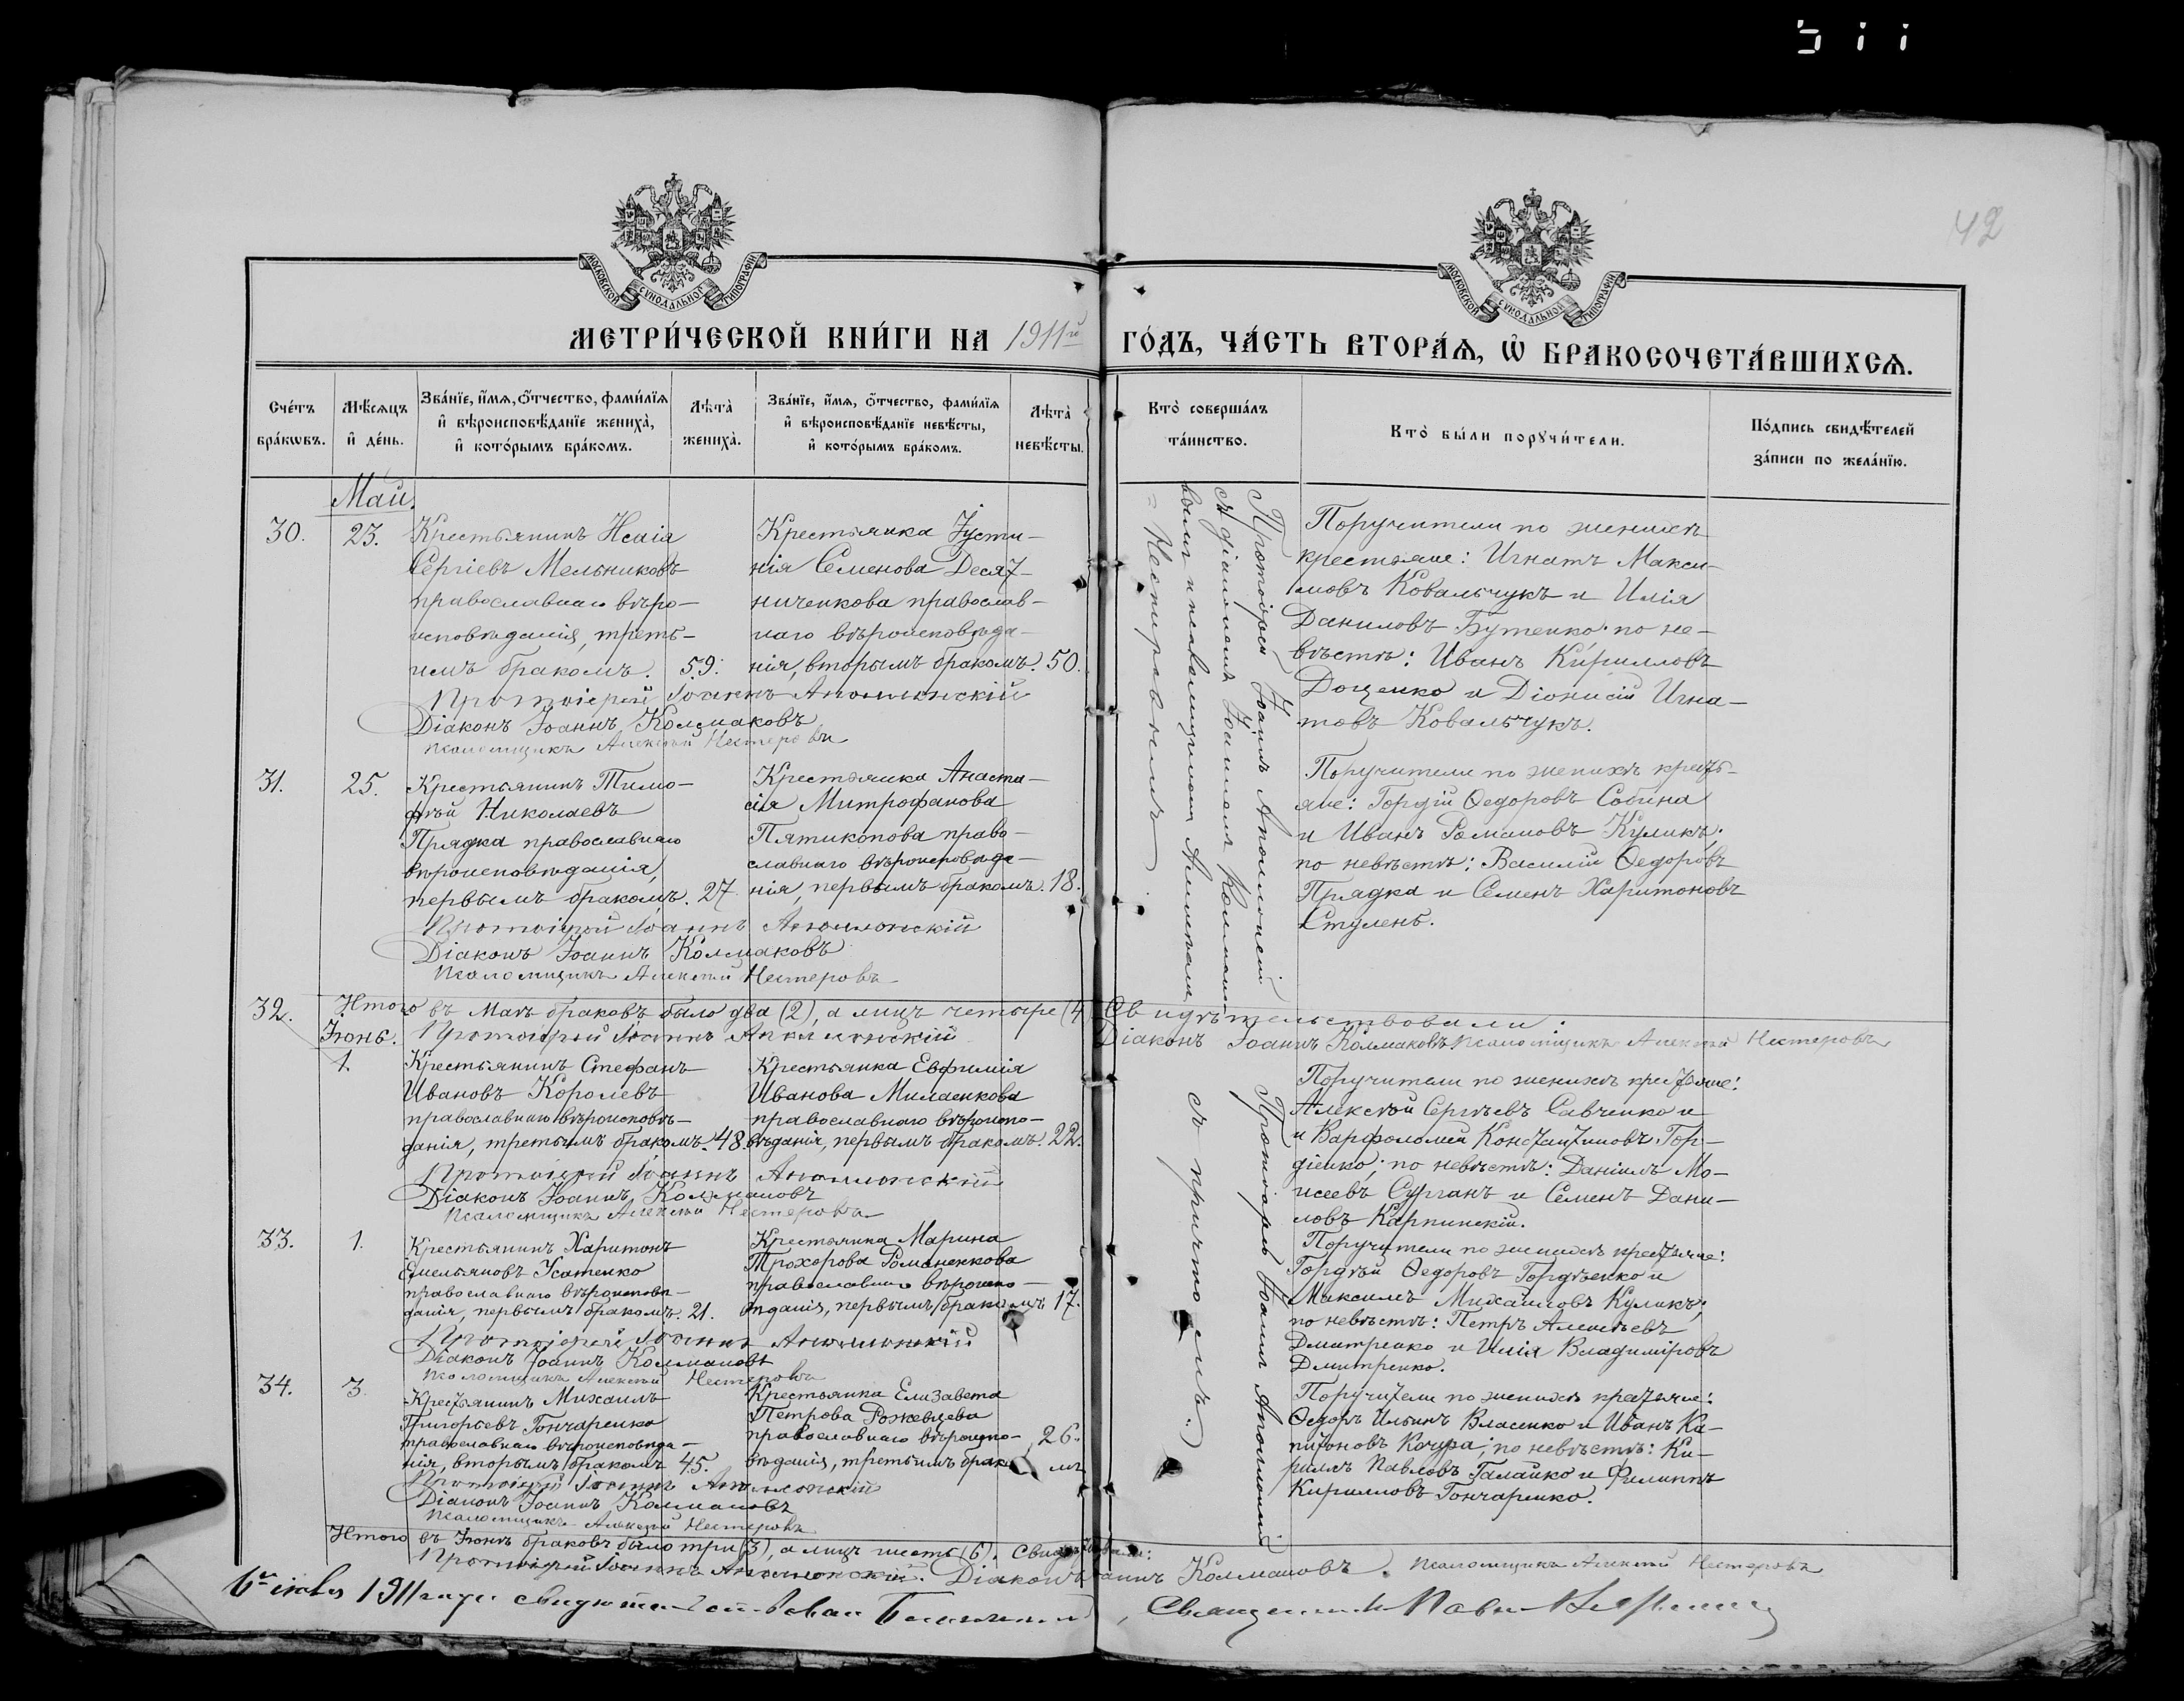 511
42
МОСКОВСКОЙ СИНОДАЛЬНОЙ ТИПОГРАФІИ
МОСКОВСКОЙ СИНОДАЛЬНОЙ ТИПОГРАФІИ
МЕТРИ́ЧЕСКОЙ КНИ́ГИ НА 1911й ГО́ДЪ, ЧА́СТЬ ВТОРА́Ѧ, Ѽ БРАКОСОЧЕТА́ВШИХСѦ.
Сче́тъ
бра́кѡвъ.
Мѣ́сѧцъ
и҆ де́нь.
Зва́нїе, и҆́мѧ, ѻ҆́тчество, фами́лїѧ
и҆ вѣроисповѣ́данїе жениха̀,
и҆ кото́рымъ бра́комъ.
Лѣта̀
жениха̀.
Зва́нїе, и҆́мѧ, ѻ҆́тчество, фами́лїѧ
и҆ вѣроисповѣ́данїе невѣ́сты,
и҆ кото́рымъ бра́комъ.
Лѣта̀
невѣ́сты.
Кто̀ соверша́лъ
та́инство.
Кто̀ бы́ли порꙋчи́тели.
По́дпись свидѣ́телей
за́писи по жела́нїю.
Май.
30.
23.
Крестьянинъ Исаія
Сергіевъ Мельниковъ
православнаго вѣро-
исповѣданія, треть-
имъ бракомъ.
59.
Крестьянка Іусти-
нія Семенова Десят-
ниченкова православ-
наго вѣроисповѣда-
нія, вторымъ бракомъ.
50.
Поручители по женихѣ
крестьяне: Игнатъ Макси-
мовъ Ковальчукъ и Илія
Даниловъ Бутенко по не-
вѣстѣ: Иванъ Кирилловъ
Доценко и Діонисій Игна-
товъ Ковальчукъ.
Протоіерей Іоаннъ Аполлонскій
Діаконъ Іоаннъ Колмаковъ
Псаломщикъ Алексѣй Нестеровъ
31.
25.
Крестьянинъ Тимо-
фѣй Николаевъ
Прядка православнаго
вѣроисповѣданія,
первымъ бракомъ.
27
Крестьянка Анаста-
сія Митрофанова
Пятикопова право-
славнаго вѣроисповѣда-
нія, первымъ бракомъ.
18.
Поручители по женихѣ крестья-
не: Гордій Ѳедоровъ Собина
и Иванъ Романовъ Куликъ;
по невѣстѣ: Василій Ѳедоровъ
Прядка и Семенъ Харитоновъ
Ступень.
Протоіерей Іоаннъ Аполлонскій
Діаконъ Іоаннъ Колмаковъ
Псаломщикъ Алексѣй Нестеровъ
Протоіерей Іоаннъ Аполлонскій
съ діакономъ Іоанномъ Колмако-
вымъ и псаломщикомъ Алексѣемъ
= Нестеровымъ.
Итого въ Маѣ браковъ было два (2), а лицъ четыре (4) Свидѣтельствовали:
Протоіерей Іоаннъ Аполлонскій Діаконъ Іоаннъ Колмаковъ. Псаломщикъ Алексѣй Нестеровъ
32.
Іюнь.
1.
Крестьянинъ Стефанъ
Ивановъ Королевъ
православнаго вѣроисповѣ-
данія, третьимъ бракомъ.
48.
Крестьянка Евфимія
Иванова Милаенкова
православнаго вѣроиспо-
вѣданія, первымъ бракомъ.
22.
Поручители по женихѣ крестьяне:
Алексѣй Сергѣевъ Савченко и
и Варфоломей Константиновъ Гор-
діенко; по невѣстѣ: Даніилъ Мо-
исеевъ Сурганъ и Семенъ Дани-
ловъ Карпинскій.
Протоіерей Іоаннъ Аполлонскій
Діаконъ Іоаннъ Колмаковъ
Псаломщикъ Алексѣй Нестеровъ
33.
1.
Крестьянинъ Харитонъ
Емельяновъ Усатенко
православнаго вѣроисповѣ-
данія, первымъ бракомъ.
21.
Крестьянка Марина
Прохорова Романенкова
православнаго вѣроиспо-
вѣданія, первымъ бракомъ
17.
Поручители по женихѣ крестьяне:
Гордѣй Ѳедоровъ Гордѣенко и
Максимъ Михайловъ Куликъ;
по невѣстѣ: Петръ Алексѣевъ
Дмитренко и Илія Владиміровъ
Дмитренко.
Протоіерей Іоаннъ Аполлонскій
Діаконъ Іоаннъ Колмаковъ
Псаломщикъ Алексѣй Нестеровъ
34.
3.
Крестьянинъ Михаилъ
Григорьевъ Гончаренко
православнаго вѣроисповѣда-
нія, вторымъ бракомъ
45.
Крестьянка Елизавета
Петрова Рожевцева
православнаго вѣроиспо-
вѣданія, третьимъ бракомъ
26.
Поручители по женихѣ крестьяне:
Ѳедоръ Ильинъ Власенко и Иванъ Ка-
питоновъ Кочура; по невѣстѣ: Ки-
риллъ Павловъ Галайко и Филиппъ
Кирилловъ Гончаренко.
Протоіерей Іоаннъ Аполлонскій
Діаконъ Іоаннъ Колмаковъ
Псаломщикъ Алексѣй Нестеровъ
Протоіерей Іоаннъ Аполлонскій
съ причтомъ.
Итого въ Іюнѣ браковъ было три (3), а лицъ шесть (6). Свидѣтельствовали:
Протоіерей Іоаннъ Аполлонскій. Діаконъ Іоаннъ Колмаковъ. Псаломщикъ Алексѣй Нестеровъ
1911 года свидѣтельствовалъ Священникъ